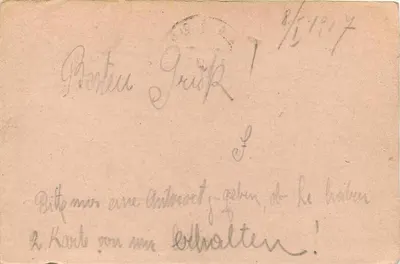 8/I 1917
Besten Gruß!
Bitte mir eine Antwort zu geben, ob Sie haben
2 Karte von mir erhalten!